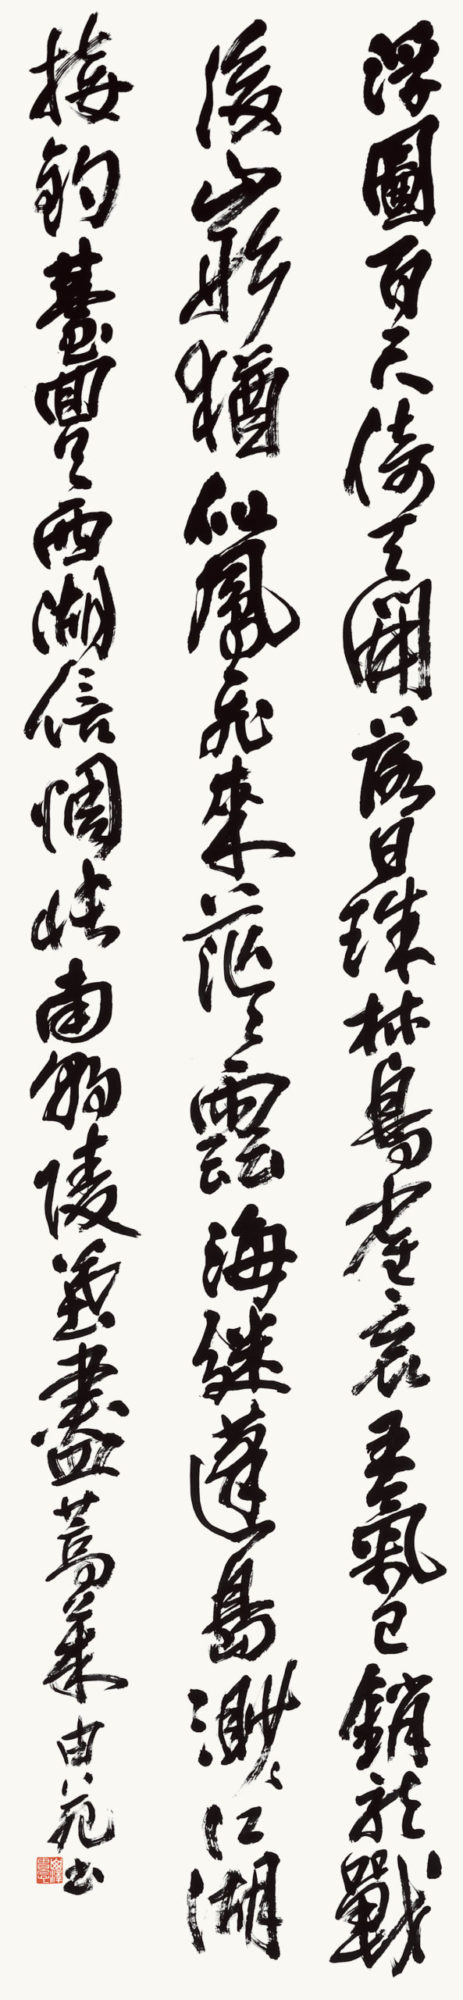 浮圖百尺倚天開落日珠林鳥雀哀王氣已銷龍戰
後山形猶似鳳飛來茫々雲海継蓬島渺々江湖
接釣臺回首西湖信惆悵南朝陵盡蒿萊由苑書